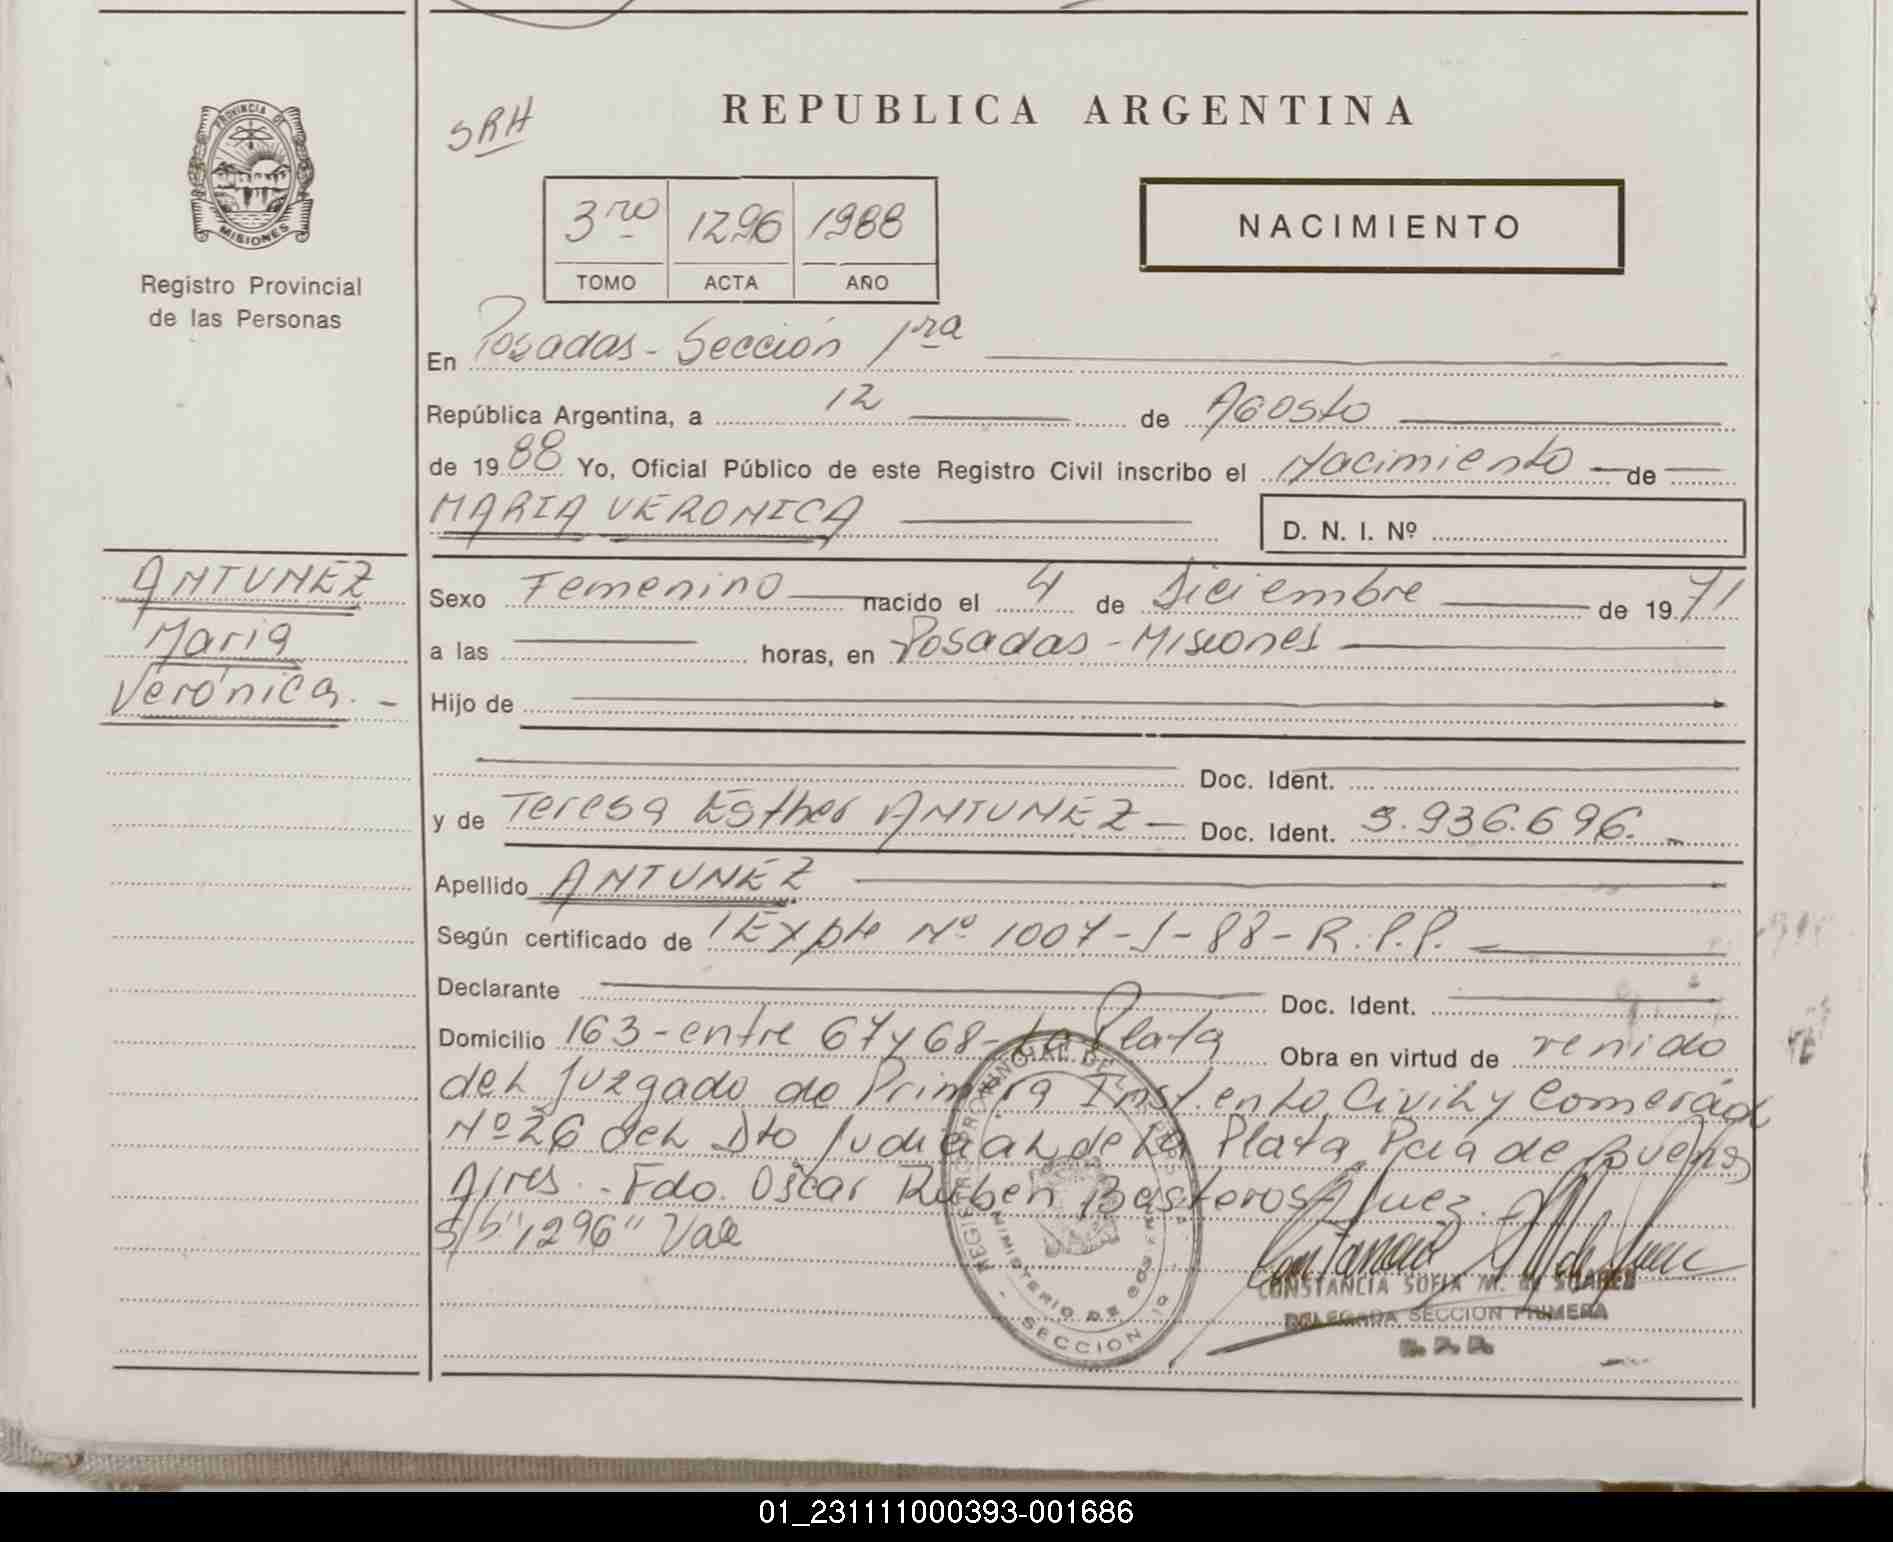 SRH
REPUBLICA ARGENTINA
PROVINCIA DE
MISIONES
Registro Provincial
de las Personas
3ro 1296 1988
TOMO ACTA AÑO
NACIMIENTO
En Posadas - Sección 1ra
República Argentina, a 12 de Agosto
de 1988 Yo, Oficial Público de este Registro Civil inscribo el Nacimiento de
MARIA VERONICA
D. N. I. Nº
ANTUNEZ
Maria
Verónica. -
Sexo Femenino nacido el 4 de Diciembre de 1971
a las horas, en Posadas - Misiones
Hijo de
Doc. Ident.
y de Teresa Esther ANTUNEZ - Doc. Ident. 3.936.696. -
Apellido ANTUNEZ
Según certificado de Expte Nº 1007-J-88-R.P.P.
Declarante Doc. Ident.
Domicilio 163 - entre 67 y 68 - La Plata Obra en virtud de venido
del Juzgado de Primera Inst. en lo Civil y Comercial
Nº 26 del Dto Judicial de La Plata Pcia de Buenos
Aires. - Fdo. Oscar Ruben Basteros Juez.
S/b "1296" Vale
REGISTRO PROVINCIAL DE LAS PERSONAS
MINISTERIO DE GOBIERNO
SECCION
CONSTANCIA SOFIA M. de SUAREZ
DELEGADA SECCION PRIMERA
R. P. P.
01_231111000393-001686